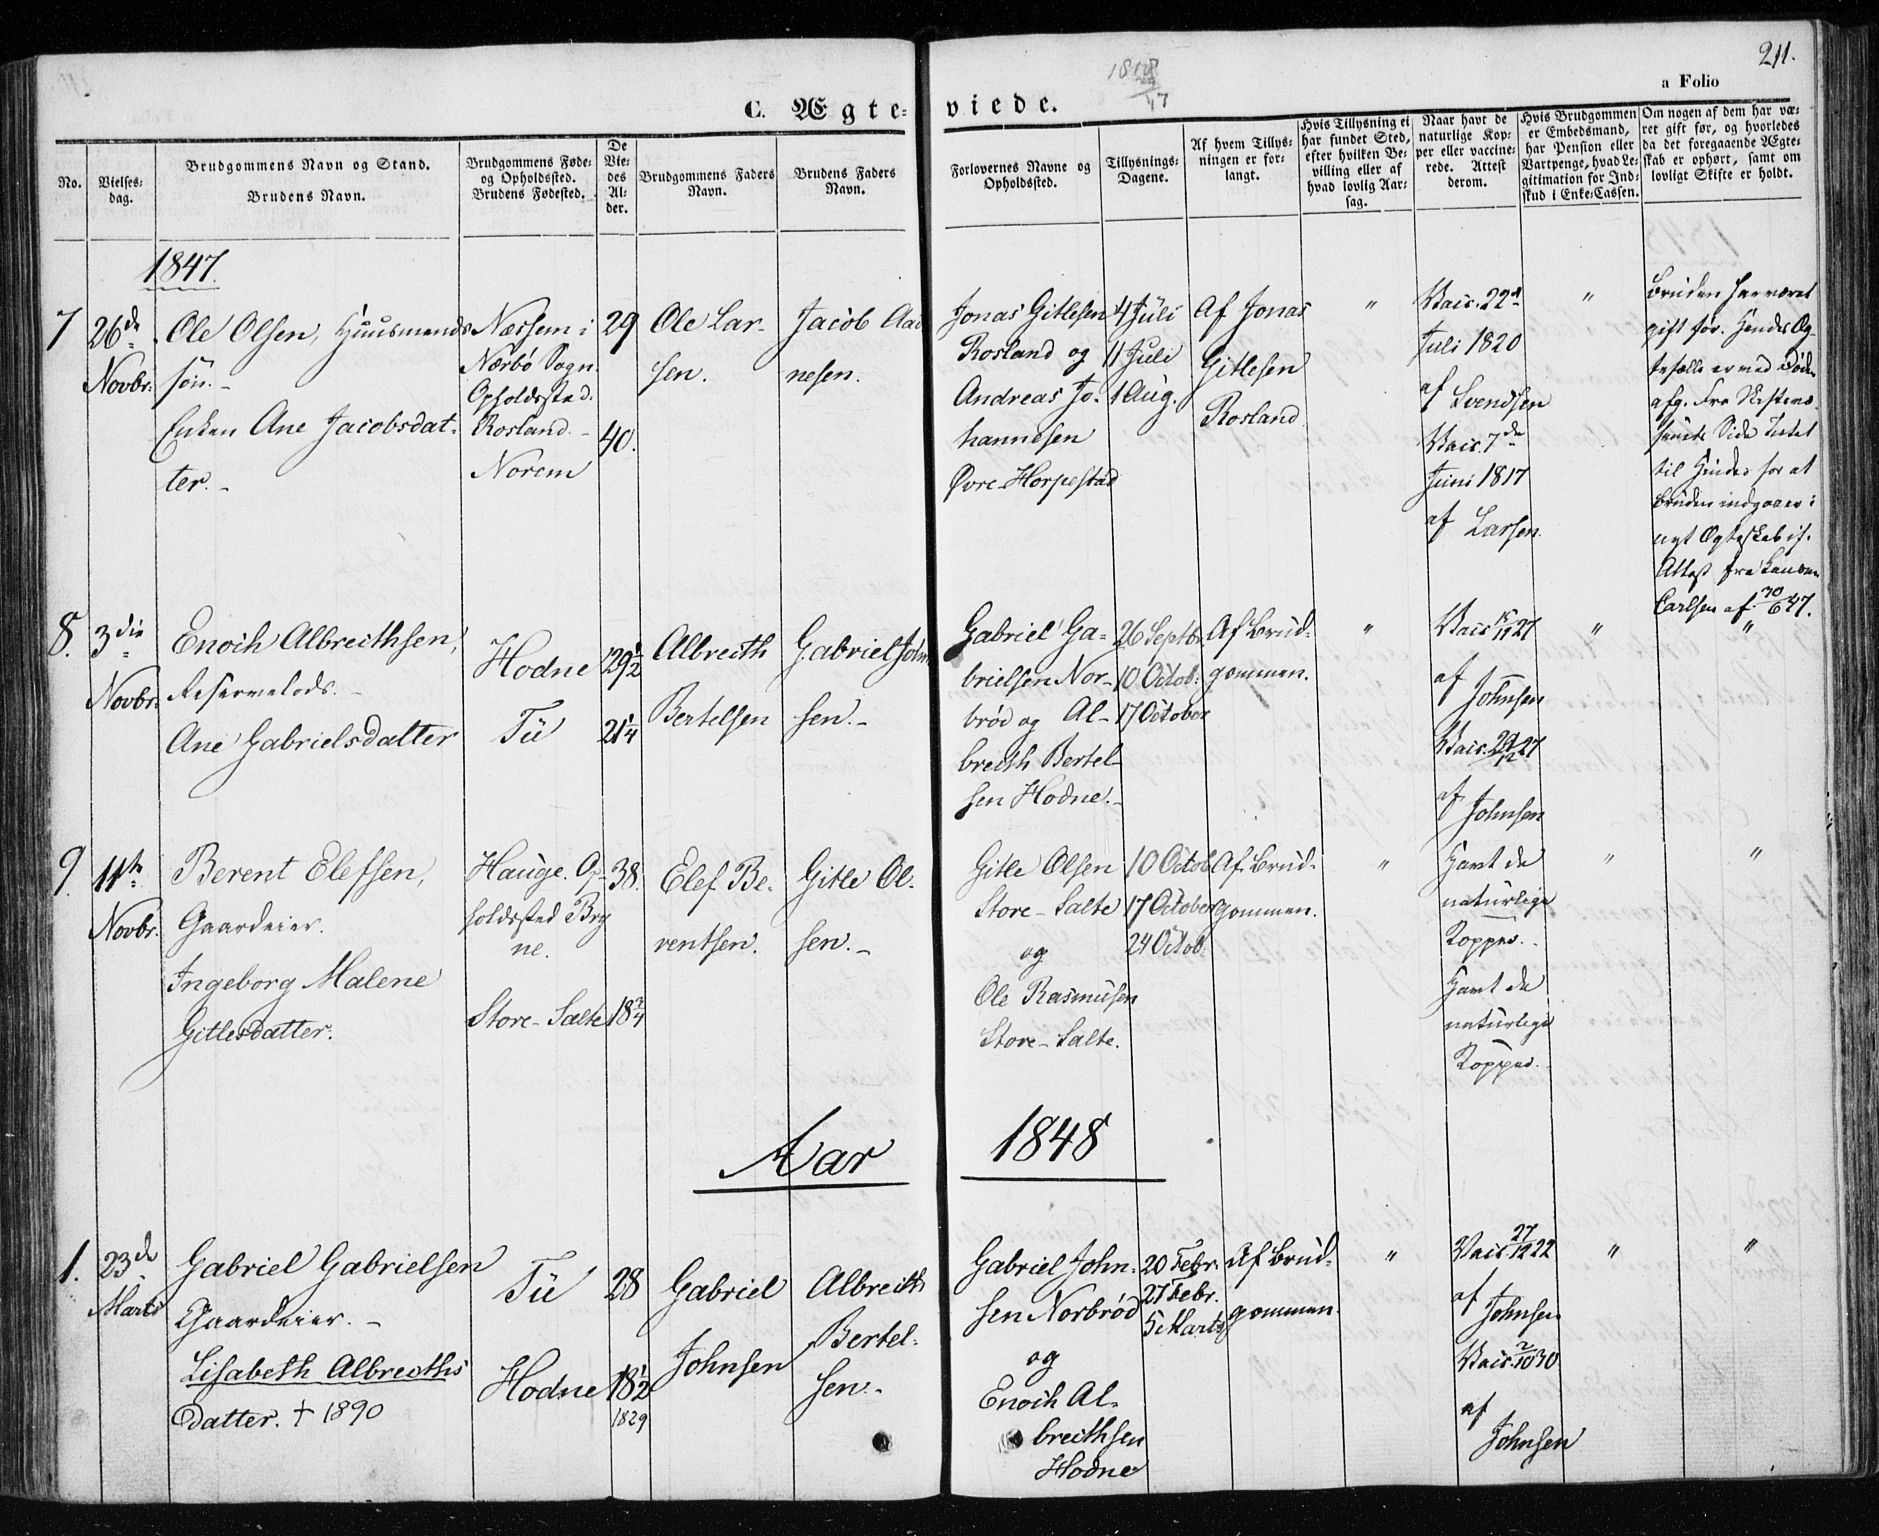 211.
a Folio
1818
29
47
C. Ægte- viede.
No.
Vielses-
dag.
Brudgommens Navn og Stand.
Brudens Navn.
Brudgommens Føde-
og Opholdssted.
Brudens Fødested.
De
Vie-
des
Al-
der.
Brudgommens Faders
Navn.
Brudens Faders
Navn.
Forlovernes Navne og
Opholdssted.
Tillysnings-
Dagene.
Af hvem Tillys-
ningen er for-
langt.
Hvis Tillysning ei
har fundet Sted,
efter hvilken Be-
villing eller af
hvad lovlig Aar-
sag.
Naar havt de
naturlige Kop-
per eller vaccine-
rede. Attest
derom.
Hvis Brudgommen
er Embedsmand,
har Pension eller
Vartpenge, hvad Le-
gitimation for Ind-
skud i Enke-Cassen.
Om nogen af dem har væ-
ret gift før, og hvorledes
da det foregaaende Ægte-
skab er ophørt, samt om
lovligt Skifte er holdt.
1847.
7
26de
Novbr.
Ole Olsen, Huusmands
søn.
Enken Ane Jacobsdat-
ter.
Næssem i
Nærbø Sogn.
Opholdssted.
Rosland.
Norem
29
40.
Ole Lar-
sen.
Jacob Aad
nesen.
Jonas Gitlesen
Rosland og
Andreas Jo-
hannesen
Øvre-Horpestad
4 Juli
11 Juli
1 Aug.
Af Jonas
Gitlesen
Rosland
"
Vacc. 22d
Juli 1820
af Svendsen
Vacc. 7de
Juni 1817
af Larsen.
"
Bruden har været
gift før. Hendes Æg-
tefælle er ved Døden
afg. Fra Skiftevæ-
senets Side Intet
til Hinder for at
Bruden indgaaer i
nyt Ægteskab if.
Attest fra
Carlsen af 30/6 47.
8.
3die
Novbr.
Enoch Albrecthsen,
Reservelods.
Ane Gabrielsdatter
Hodne
Tu
29 1/2
21 1/4
Albrecth
Bertelsen
Gabriel John
sen.
Gabriel Ga-
brielsen Nor-
brød og Al-
brecth Bertel-
sen Hodne.
26 Septbr.
10 Octob.
17 October
Af Brud-
gommen.
"
Vacc 27
af Johnsen
Vacc. 29/12 27
af Johnsen
"
"
9.
11te
Novbr.
Berent Elefsen,
Gaardeier.
Ingeborg Malene
Gitlesdatter.
Hauge. Op-
holdssted Bry
ne.
Store-Salte
38.
18 3/4
Elef Be-
rentsen.
Gitle Ol-
sen.
Gitle Olsen
Store-Salte
og
Ole Rasmusen
Store-Salte.
10 Octob
17 October
24 Octob.
Af Brud-
gommen.
"
Havt de
naturlige
Kopper.
Havt de
naturlige
Kopper.
"
"
Aar 1848
1.
23de
Marts
Gabriel Gabrielsen
Gaardeier.
Lisabeth Albrecths
datter. † 1890
Tu
Hodne
28
18 1/2
1829
Gabriel
Johnsen
Albrecth
Bertel-
sen.
Gabriel John-
sen Norbrød
og
Enoch Al-
brecthsen
Hodne
20 Febr.
27 Febr.
5 Marts
Af Brud-
gommen.
"
Vacc 27/12 22
af Johnsen
Vacc. 2/10 30.
af
Johnsen
"
"